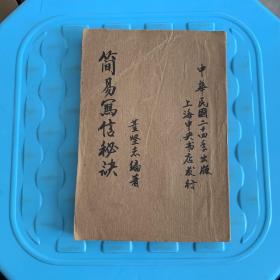 中華民國二十四年出版
上海中央书店发行
简易寫信秘诀
董坚志編著